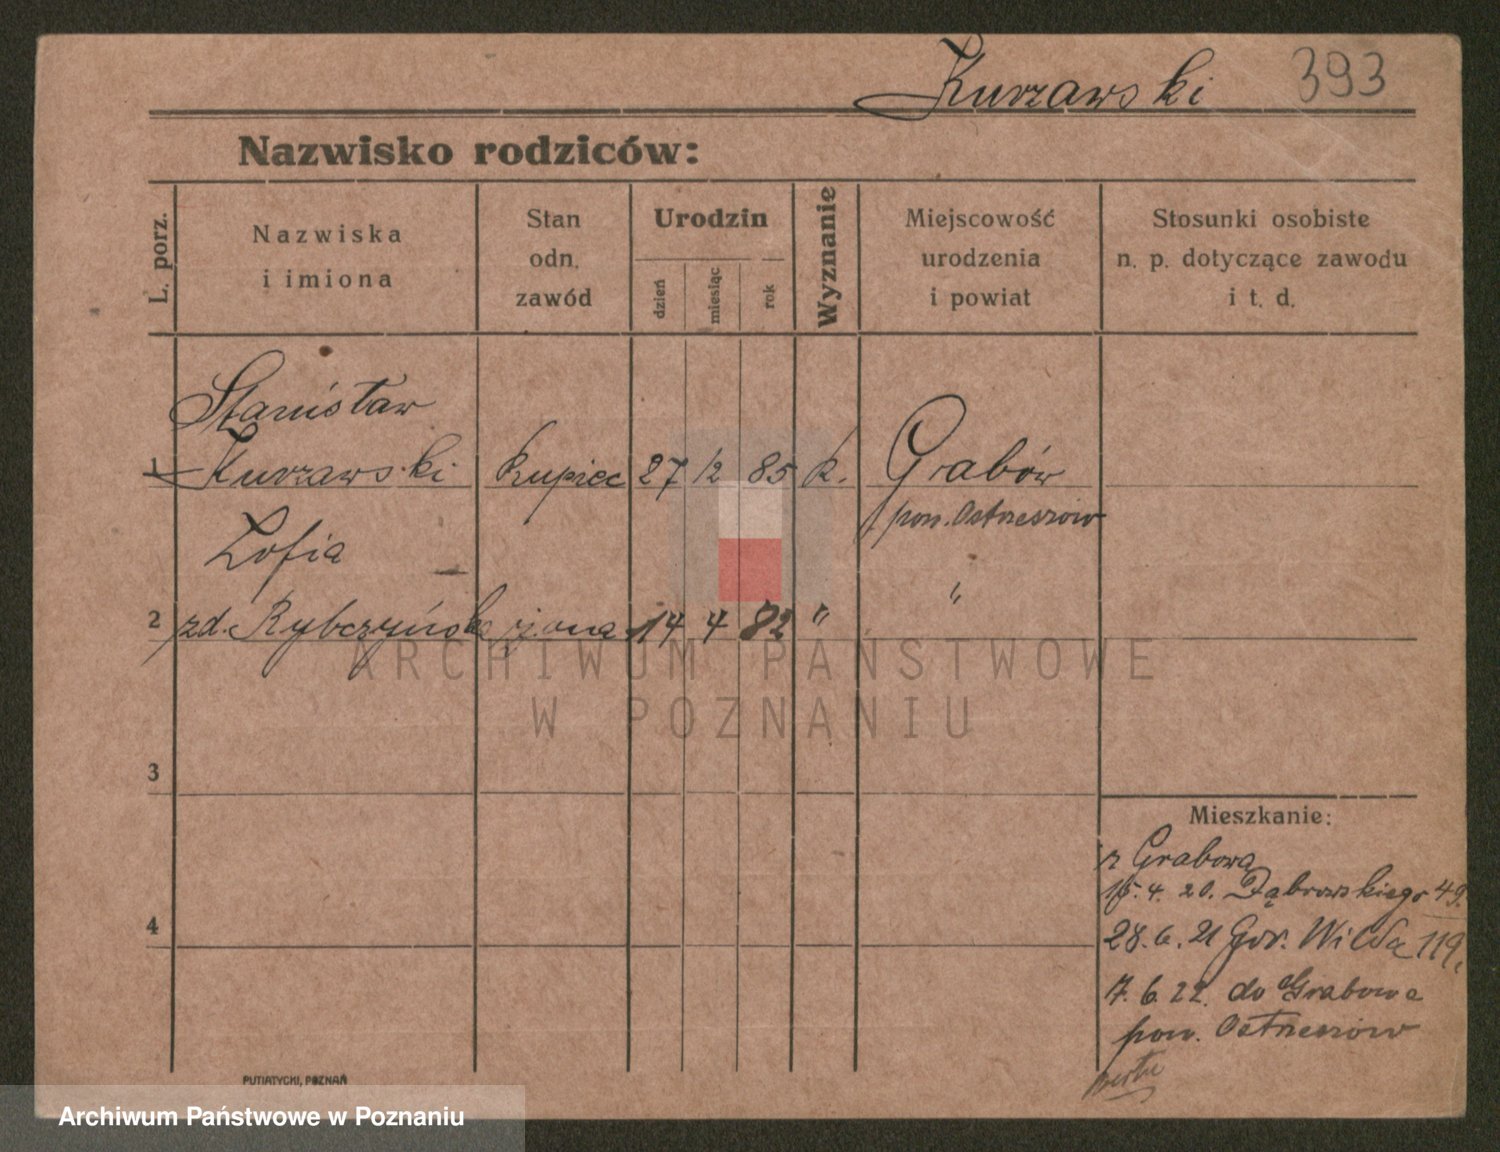 Kurzawski 393
Nazwisko rodziców:
L. porz.
Nazwiska
i imiona
Stan
odn.
zawód
Urodzin
dzień
miesiąc
rok
Wyznanie
Miejscowość
urodzenia
i powiat
Stosunki osobiste
n. p. dotyczące zawodu
i t. d.
Stanisław
1 Kurzawski Kupiec 27 12 85 K. Grabów
pow. Ostrzeszów
Zofia
2 zd. Rybczyńska żona 14 4 82 " "
3
4
Mieszkanie:
z Grabowa
15. 4. 20. Dąbrowskiego 49.
28. 6. 21 Gór. Wilda 119.
7. 6. 22. do Grabowa
pow. Ostrzeszów
PUTIATYCKI, POZNAŃ
ARCHIWUM PAŃSTWOWE
W POZNANIU
Archiwum Państwowe w Poznaniu